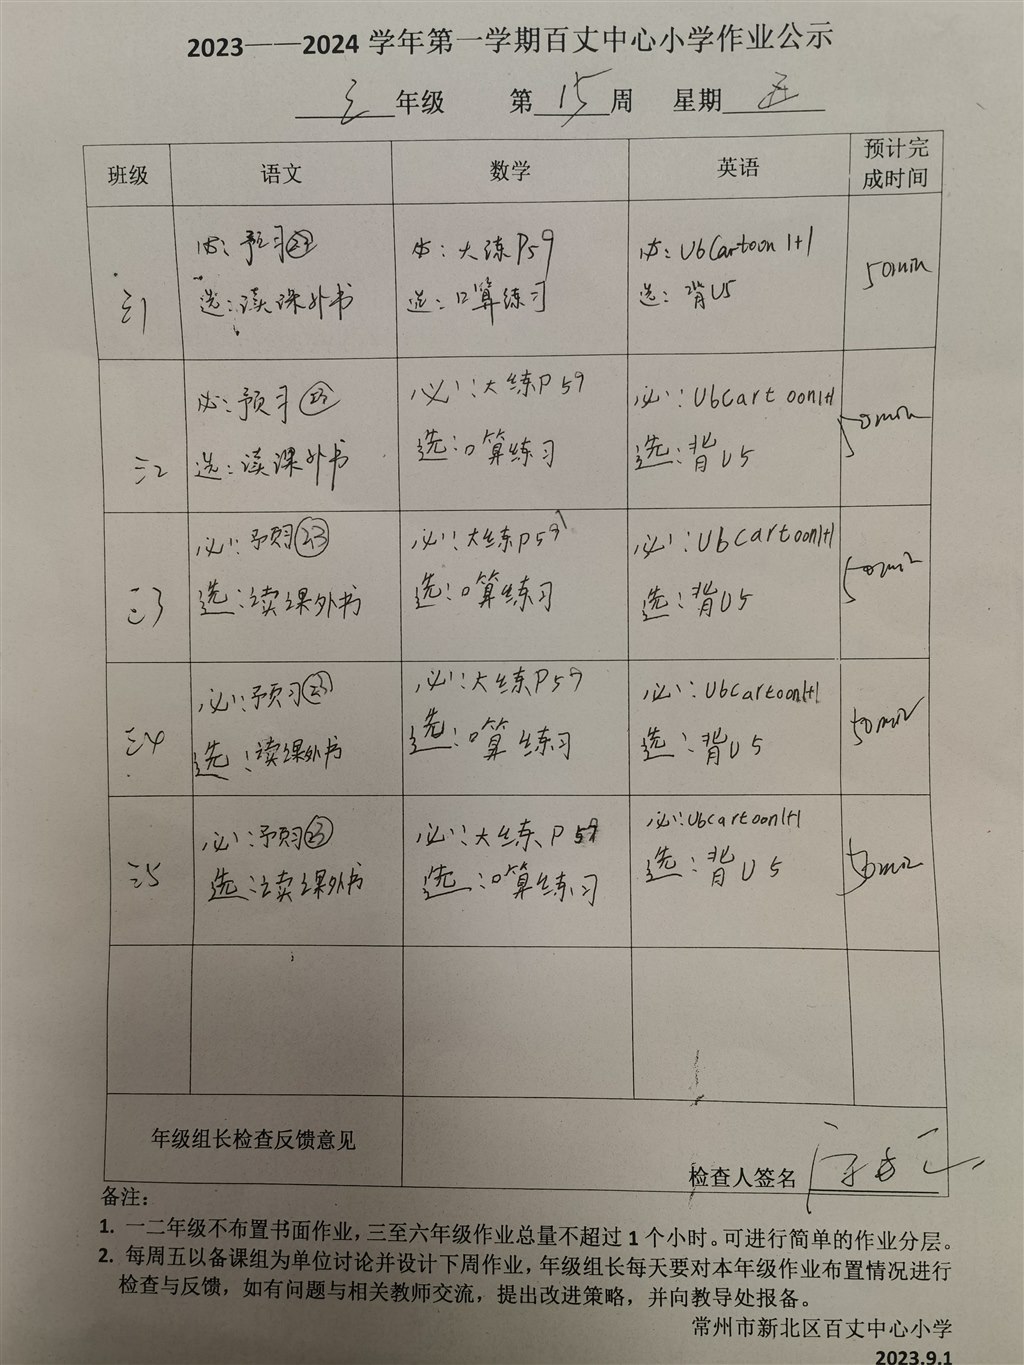 2023——2024 学年第一学期百丈中心小学作业公示
三年级 第15周 星期五
班级 语文 数学 英语 预计完成时间
三1
必：预习㉓
选：读课外书
必：大练P59
选：口算练习
必：Ub Cartoon 1+1
选：背U5
50min
三2
必：预习㉓
选：读课外书
必：大练P59
选：口算练习
必：Ub Cartoon 1+1
选：背U5
50min
三3
必：预习㉓
选：读课外书
必：大练P59
选：口算练习
必：Ub Cartoon 1+1
选：背U5
50min
三4
必：预习㉓
选：读课外书
必：大练P59
选：口算练习
必：Ub cartoon 1+1
选：背U5
50min
三5
必：预习㉓
选：读课外书
必：大练P59
选：口算练习
必：Ub cartoon 1+1
选：背U5
50min
年级组长检查反馈意见
检查人签名
备注：
1. 一二年级不布置书面作业，三至六年级作业总量不超过 1 个小时。可进行简单的作业分层。
2. 每周五以备课组为单位讨论并设计下周作业，年级组长每天要对本年级作业布置情况进行
检查与反馈，如有问题与相关教师交流，提出改进策略，并向教导处报备。
常州市新北区百丈中心小学
2023.9.1